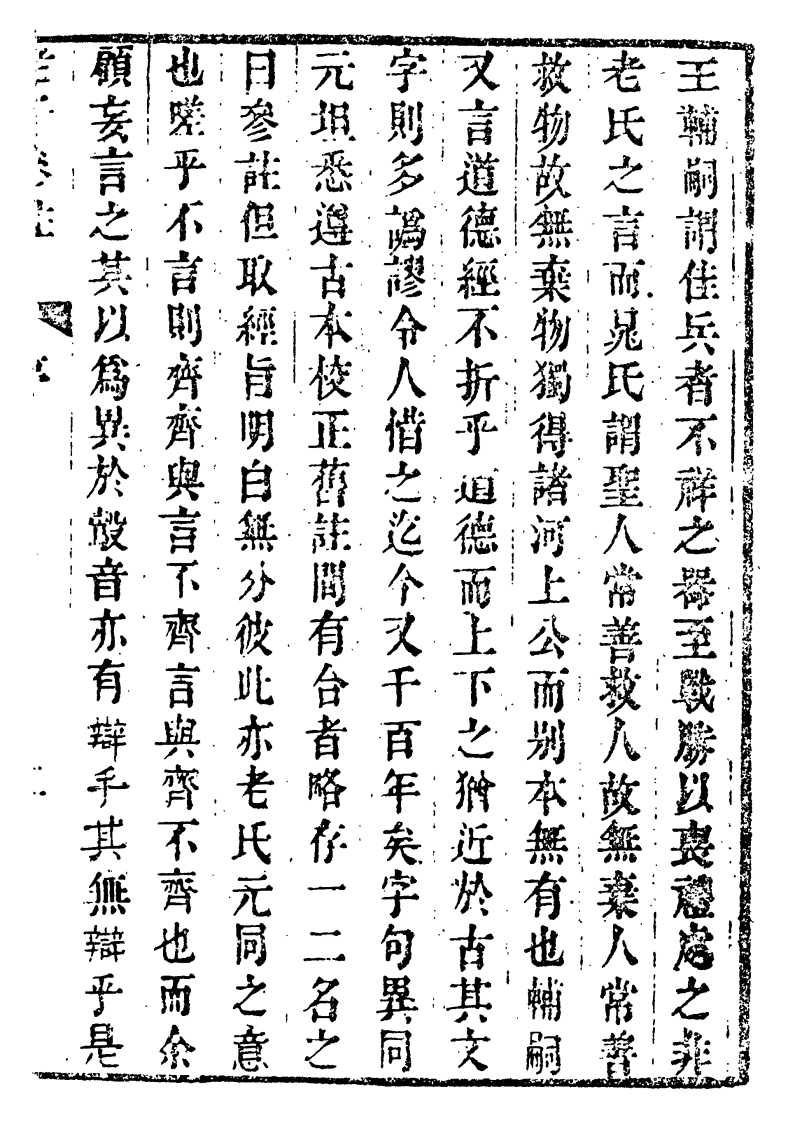 王輔嗣謂佳兵者不祥之器至戰勝以喪禮處之非
老氏之言而晁氏謂聖人常善救人故無棄人常善
救物故無棄物獨得諸河上公而别本無有也輔嗣
又言道德經不折乎道德而上下之猶近於古其文
字則多譌謬令人惜之迄今又千百年矣字句異同
元坦悉遵古本校正舊註間有合者略存一二名之
曰參註但取經旨明白無分彼此亦老氏元同之意
也嗟乎不言則齊齊與言不齊言與齊不齊也而余
顧妄言之其以爲異於鷇音亦有辯乎其無辯乎是